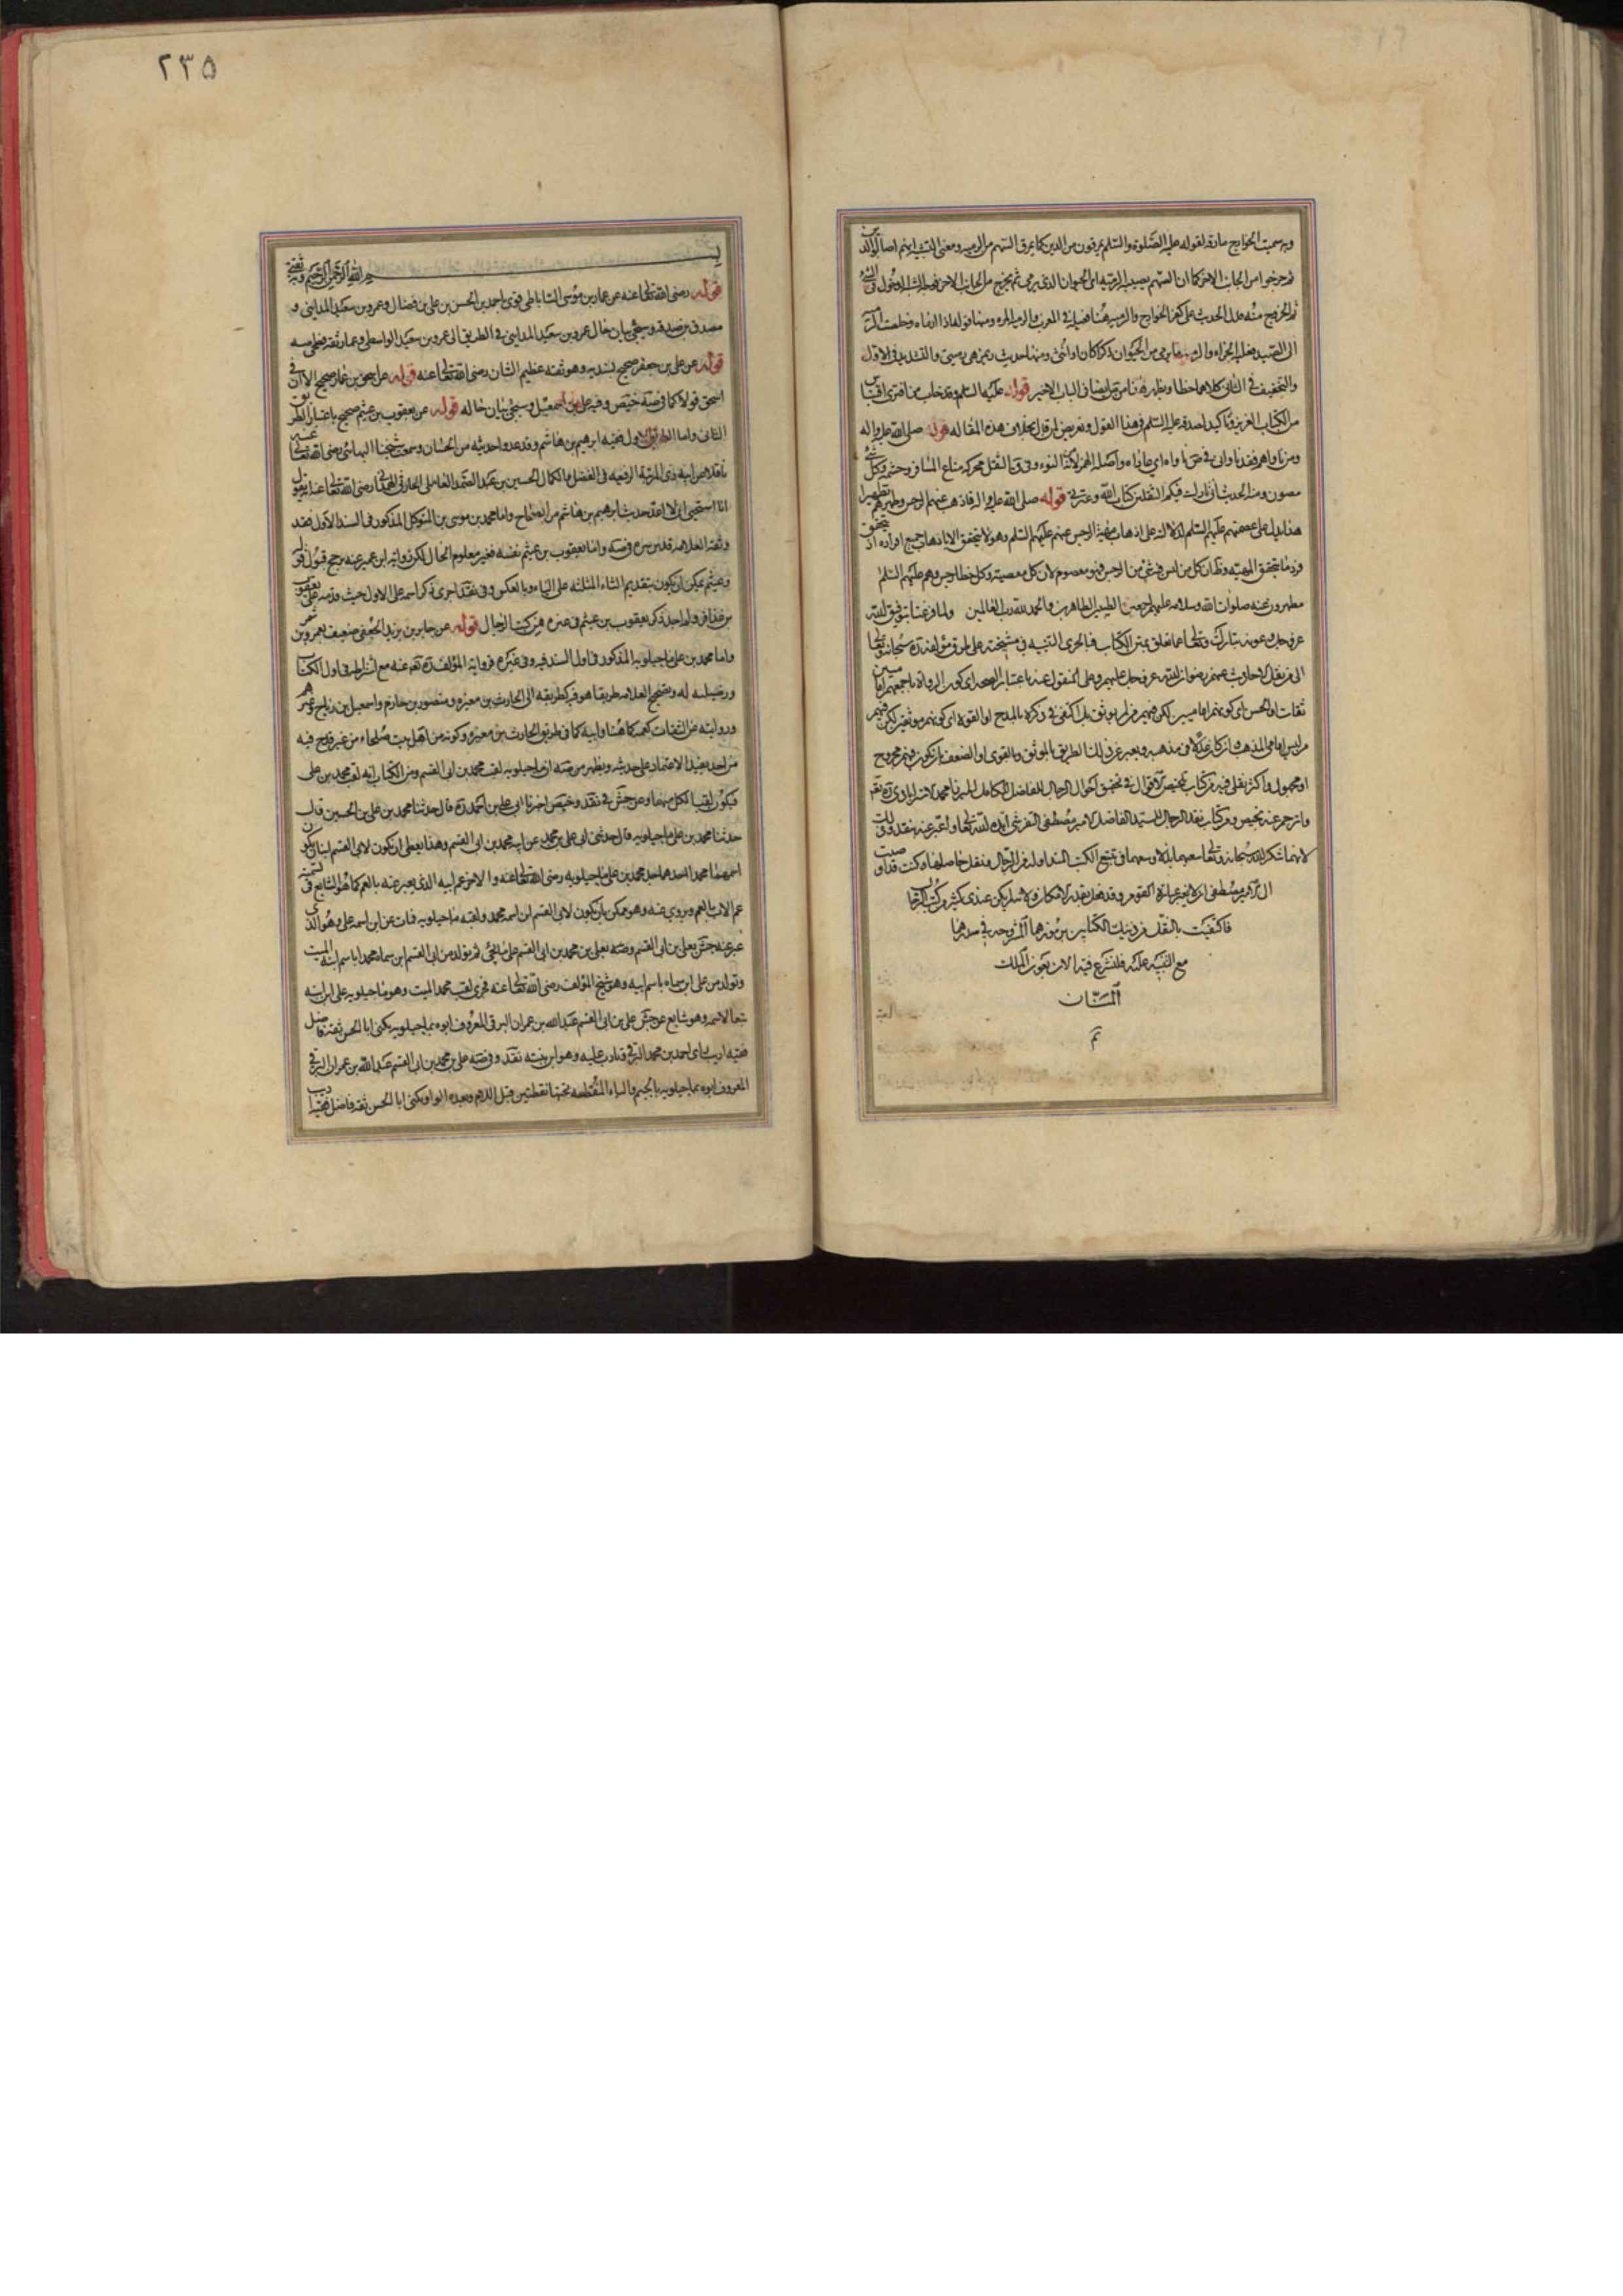 وبه سميت الخوارج مارقة لقوله عليه الصلوة والسلم يمرقون من الدين كما يمرق السهم من الرميه ومعنى التشبيه انهم اصابوا الدين
ثم خرجوا من الجانب الاخر كما ان السهم يصيب الرميه اى الحيوان الذى يرمى ثم يخرج من الجانب الاخر فوجه الشبه الدخول فى الشئ
ثم الخروج منه فدل الحديث على كفر الخوارج والرميه هنا
الى الصيد ما يرمى من الحيوان ذكرا كان او انثى ومنها حديث
والتخفيف فى الثانى كلاهما خطا ويظهر قوله عليهما السلم وقد خاب من افترى اقتباس
من الكتاب العزيز وتاكيد لصدقه عليه السلم فى هذا القول وتعريض لمن قال بخلاف هذه المقاله قوله صلى الله عليه واله
ومن ناواهم فقد ناوانى اى عاداه واصله الهمز لانه من النوء وفى ق الثقل محركة متاع المسافر وحشمه وكل شئ
مصون ومنه الحديث انى تارك فيكم الثقلين كتاب الله وعترتى قوله صلى الله عليه واله فاذهب عنهم الرجس وطهرهم تطهيرا
هذا دليل على عصمتهم عليهم السلم لدلالته على اذهاب ماهية الرجس عنهم عليهم السلم وهو لا يتحقق الا باذهاب جميع افراده اذ
تتحقق المهيه وظ ان كل من ليس فيه شئ من الرجس فهو معصوم لان كل معصيه وكل خطا رجس وهم عليهم السلم
مطهرون عنه صلوات الله وسلامه عليهم اجمعين الطيبين الطاهرين والحمد لله رب العالمين ولما فرغنا بتوفيق الله
عز وجل وعونه تبارك وتعالى عما تعلق بمتن الكتاب فبالحرى التنبيه فى مشيخته على طرق مؤلفه ره سبحانه وتعالى
الى من نقل الاحاديث عنهم رضوان الله عز وجل عليهم وعلى المنقول عنه باعتبار الصحه اى كون الرواة باجمعهم اماميين
ثقات او الحسن اى كونهم اماميين لكن فيهم من لم يوثق بل اكتفى فى ذكره بالمدح او القوه اى كونهم موثقين لكن فيهم
من ليس امامى المذهب وان كان عدلا فى مذهبه ويعبر عن ذلك الطريق بالموثق وبالقوى او الضعف بان يكون فيهم مجروح
او مجهول واكثر نقلى فيه من كتاب تلخيص الاقوال فى تحقيق احوال الرجال للفاضل الكامل الميرزا محمد الاسترابادى ره نعم
وانرجم عنه بخيص ومن كتاب نقد الرجال للسيد الفاضل الامير مصطفى التفرشى ايده الله تعالى واعبر عنه بنقد وقلت
لانهما شكر الله سبحانه وتعالى سعيهما بذلا وسعهما فى تتبع الكتب المتداوله فى الرجال ونقل حاصلها وكنت قد اوصيت
الى الامير مصطفى ان لا يغير عبارة القوم وقد فعل بقدر الامكان ولما لم يكن عندى كثير من كتب الرجال
فاكتفيت بالنقل من ذينك الكتابين
مع التنبيه عليه فلنشرع فيه الان بعون الملك
المنان
تم
٢٣٥
بسم الله الرحمن الرحيم وبه ثقتى
قوله رضى الله تعالى عنه عن عمار بن موسى الساباطى قوى باحمد بن الحسن بن على بن فضال وعمرو بن سعيد المداينى و
مصدق بن صدقه وسيجئ بيان حال عمرو بن سعيد المداينى فى الطريق الى عمرو بن سعيد الواسطى وعمار ثقه فطحى
قوله عن على بن جعفر صحيح بسنديه وهو ثقه عظيم الشان رضى الله تعالى عنه قوله عن اسحق بن عمار صحيح الا ان فى
اسحق قولا كما فى صه خيص وفيه على بن اسمعيل وسيجئ بيان حاله قوله عن يعقوب بن عيثم صحيح باعتبار الطريق
الثانى واما الطريق الاول ففيه ابرهيم بن هاشم وقد عدوا حديثه من الحسان وسمعت شيخنا البهائى رضى الله تعالى عنه
ناقلا عن ابيه ذى المرتبة الرفيعه فى الفضل والكمال الحسين بن عبد الصمد العاملى الحارثى الهمدانى رضى الله تعالى عنه يقول
انا استحيى ان لا اعد حديث ابرهيم بن هاشم من الصحاح واما محمد بن موسى بن المتوكل المذكور فى السند الاول فقد
وثقه العلامه قدس سره فى صه واما يعقوب بن عيثم نفسه فغير معلوم الحال لكن رواية ابن عمير عنه يرجح قبول قوله
وعيثم يمكن ان يكون بتقديم الثاء المثلثه على الياء وبالعكس وفى نقد اجرى ذكر اسمه على الاول حيث قدمه على يعقوب
بن عذافر ولم اجد ذكر يعقوب بن عيثم فى غيره من كتب الرجال قوله عن جابر بن يزيد الجعفى ضعيف بعمرو بن شمر
واما محمد بن على ماجيلويه المذكور فى اول السند فيه وفى غيره فرواية المؤلف ره نعم عنه مع اشتراطه فى اول الكتاب
وترضيه له وتصحيح العلامه طريقا هو فيه كطريقه الى الحارث بن مغيره ومنصور بن حازم واسمعيل بن رباح وغيرهم
وروايته عن الثقات كعمه كما هنا وابيه كما فى طريق الحارث بن مغيره وكونه من اهل بيت صلحاء من غير قدح فيه
من احد يفيد الاعتماد على حديثه ويظهر من صه ان ماجيلويه لقب محمد بن ابى القسم ومن الكتاب انه لقب محمد بن على
فيكون لقبا لكل منهما وعن جش فى نقد وخيص اخبرنا ابى على بن احمد ره قال حدثنا محمد بن على بن الحسين قال
حدثنا محمد بن على ماجيلويه قال حدثنى ابى على بن محمد عن ابيه محمد بن ابى القسم وهذا يعطى ان يكون لابى القسم ابنان يكون
اسمهما محمدا احدهما جد محمد بن على ماجيلويه رضى الله تعالى عنه والاخر عم ابيه الذى يعبر عنه بالعم كما هو الشايع فى تسميه
عم الاب بالعم ويروى عنه وهو ممكن بان يكون لابى القسم ابن اسمه محمد ولقبه ماجيلويه فمات عن ابن اسمه على وهو الذى
عبر عنه جش بعلى بن ابى القسم وصه بعلى بن محمد بن ابى القسم على ما يجئ ثم تولد من ابى القسم ابن سماه محمدا باسم ابنه الميت
وتولد من على ابن سماه باسم ابيه وهو شيخ المؤلف رضى الله تعالى عنه فجرى لقب محمد الميت وهو ماجيلويه على ابن ابنه
تبعا لاسمه وهو شايع عن جش على بن ابى القسم عبد الله بن عمران البرقى المعروف ابوه بماجيلويه يكنى ابا الحسن ثقه فاضل
فقيه اديب راى احمد بن محمد البرقى وتادب عليه وهو ابن بنته نقد وفى صه على بن محمد بن ابى القسم عبد الله بن عمران البرقى
المعروف ابوه بماجيلويه بالجيم والياء المنقطه تحتها نقطتين قبل اللام وبعده الواو يكنى ابا الحسن ثقه فاضل فقيه اديب